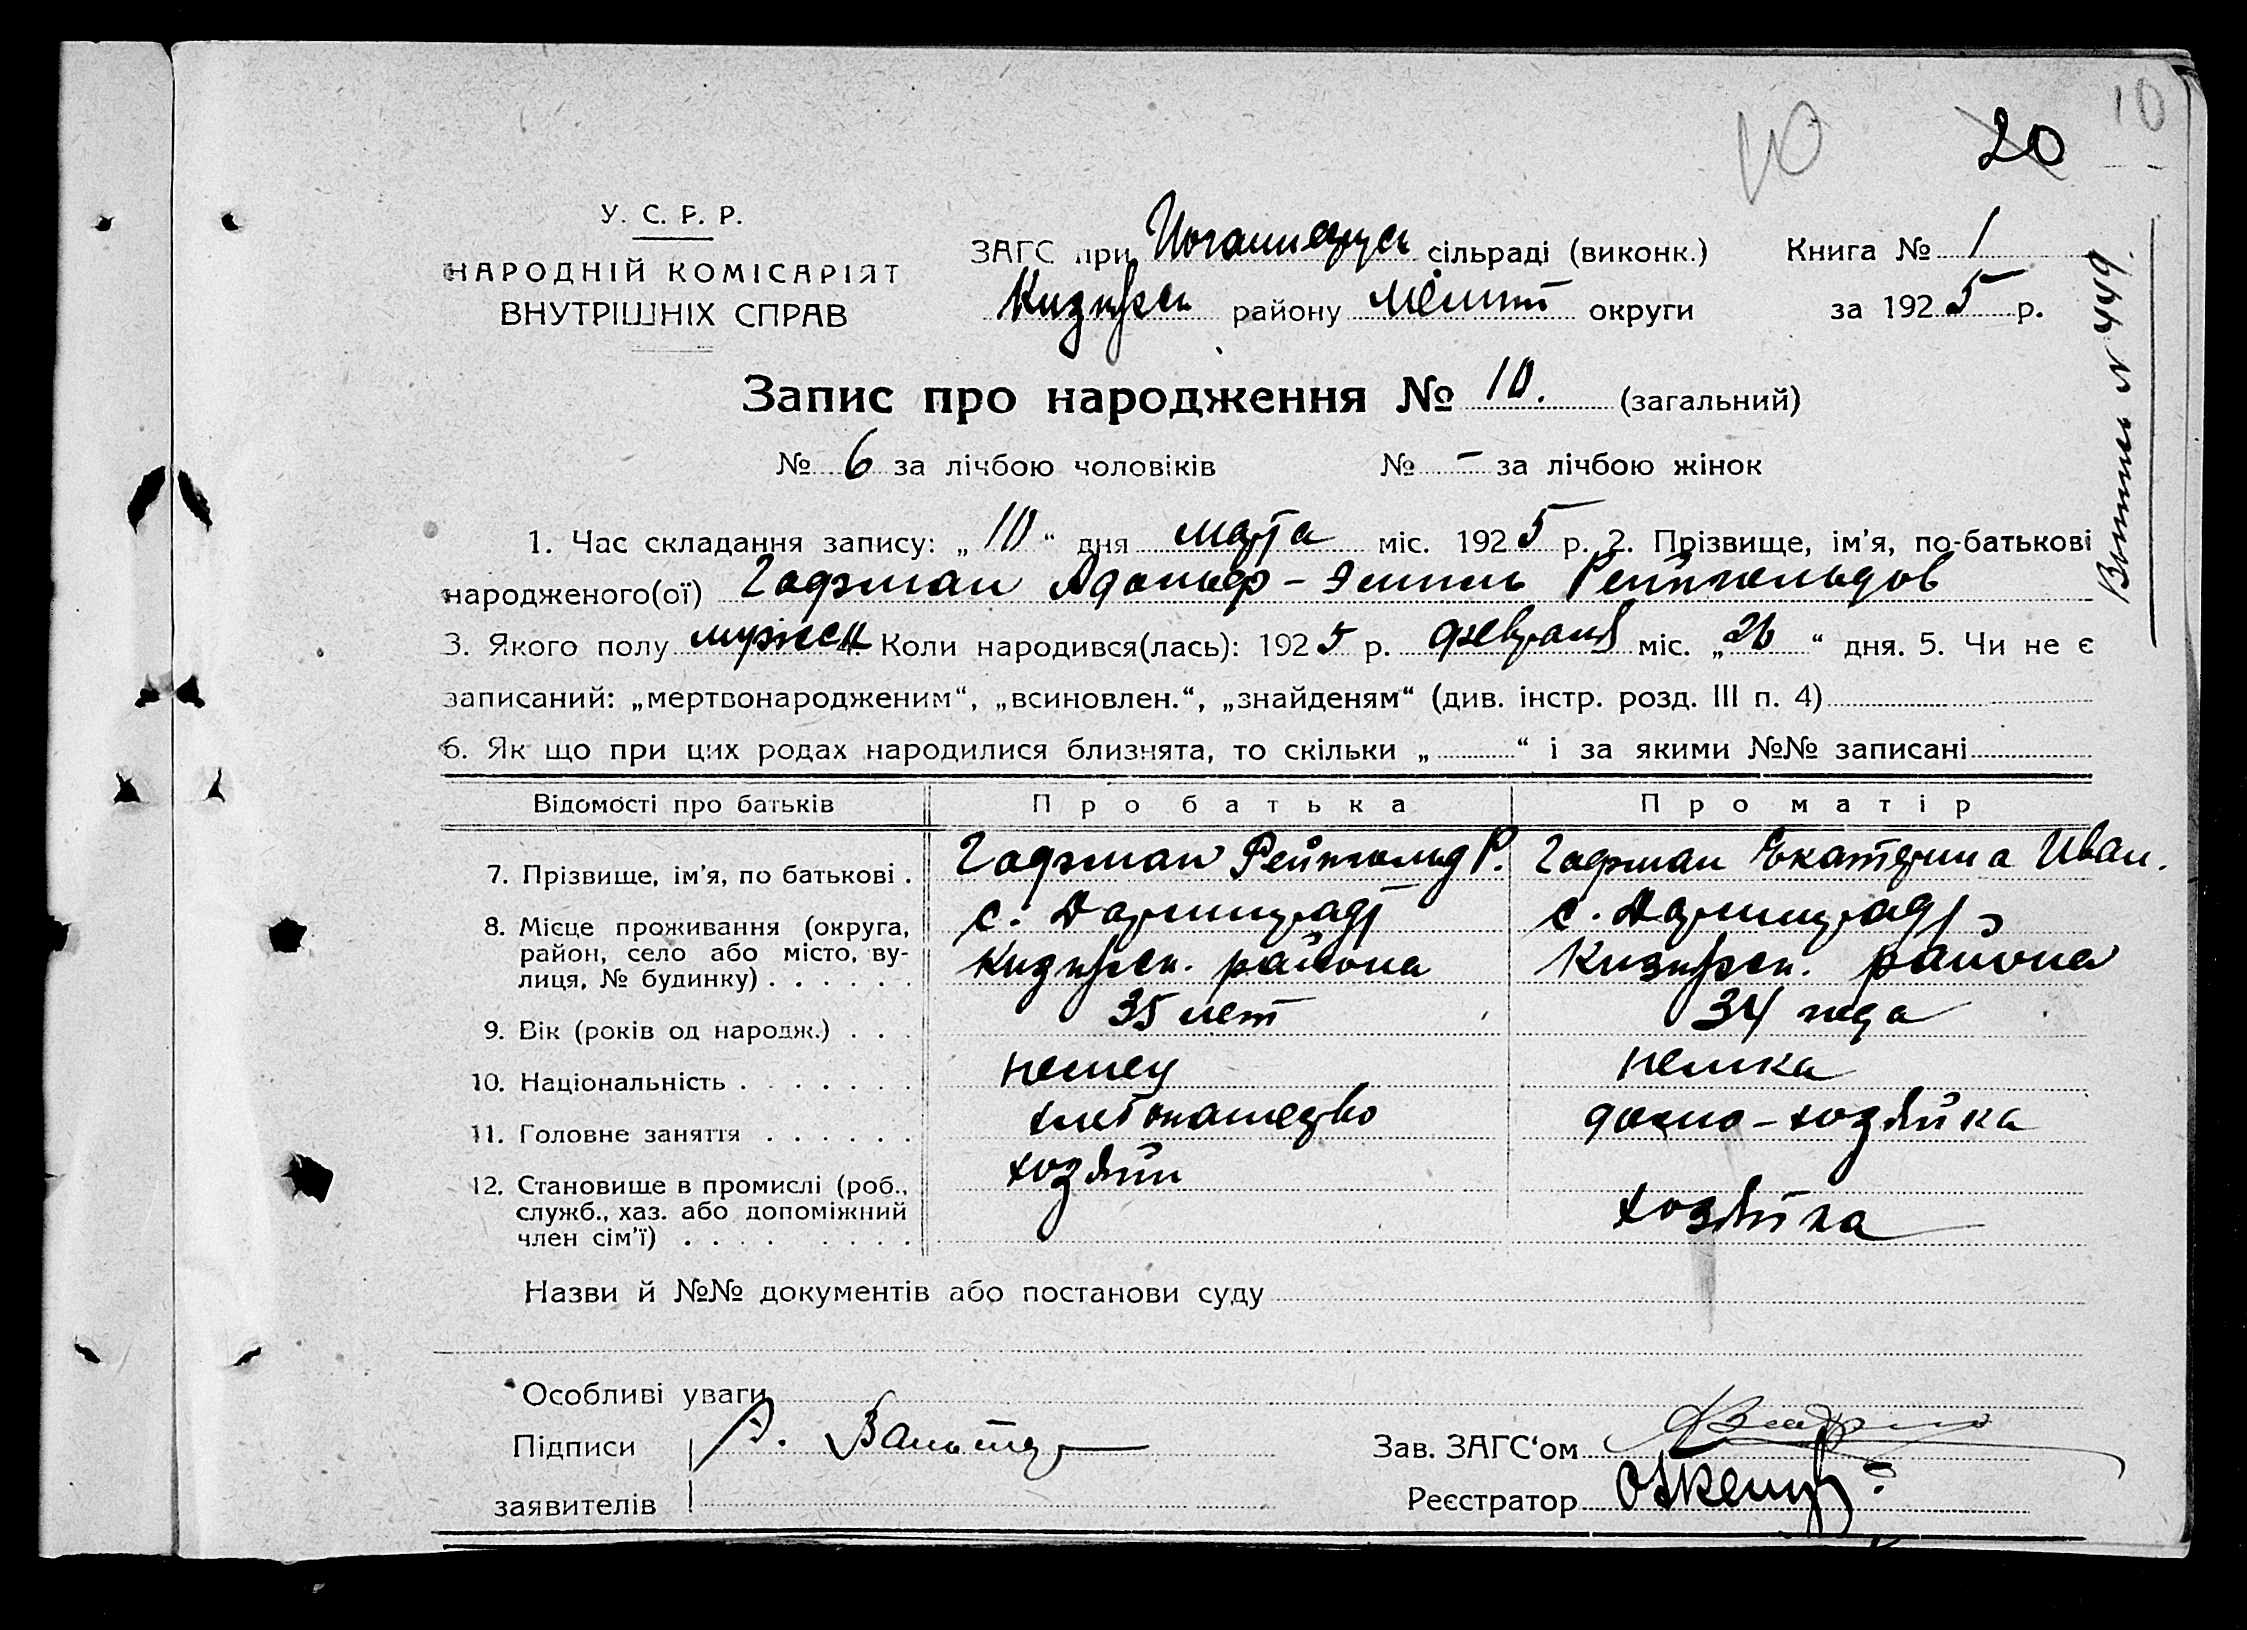 10
10
20
У. С. Р. Р.
НАРОДНІЙ КОМІСАРІЯТ
ВНУТРІШНІХ СПРАВ
ЗАГС при сільраді (виконк.) Книга № 1
району Меліт округи за 1925 р.
Запис про народження № 10. (загальний)
№ 6 за лічбою чоловіків № – за лічбою жінок
1. Час складання запису: „10“ дня марта міс. 1925 р. 2. Прізвище, ім'я, по-батькові
народженого(ої) Гофман Адольф-Эмиль Рейнгольдов
3. Якого полу мужск 4. Коли народився(лась): 1925 р. февраля міс. „26“ дня. 5. Чи не є
записаний: „мертвонародженим“, „всиновлен.“, „знайденям“ (див. інстр. розд. III п. 4)
6. Як що при цих родах народилися близнята, то скільки „ “ і за якими №№ записані
Відомості про батьків Про батька Про матір
7. Прізвище, ім'я, по батькові . Гофман Рейнгольд Р. Гофман Екатерина Иван.
8. Місце проживання (округа, с. Дармштадт с. Дармштадт
район, село або місто, ву- района района
лиця, № будинку)
9. Вік (років од народж.) 35 лет 34 года
10. Національність немец немка
11. Головне заняття хлебопашество домо-хозяйка
12. Становище в промислі (роб., хозяин
служб., хаз. або допоміжний хозяйка
член сім'ї)
Назви й №№ документів або постанови суду
Особливі уваги
Підписи Вальтер Зав. ЗАГС'ом
заявителів Реєстратор